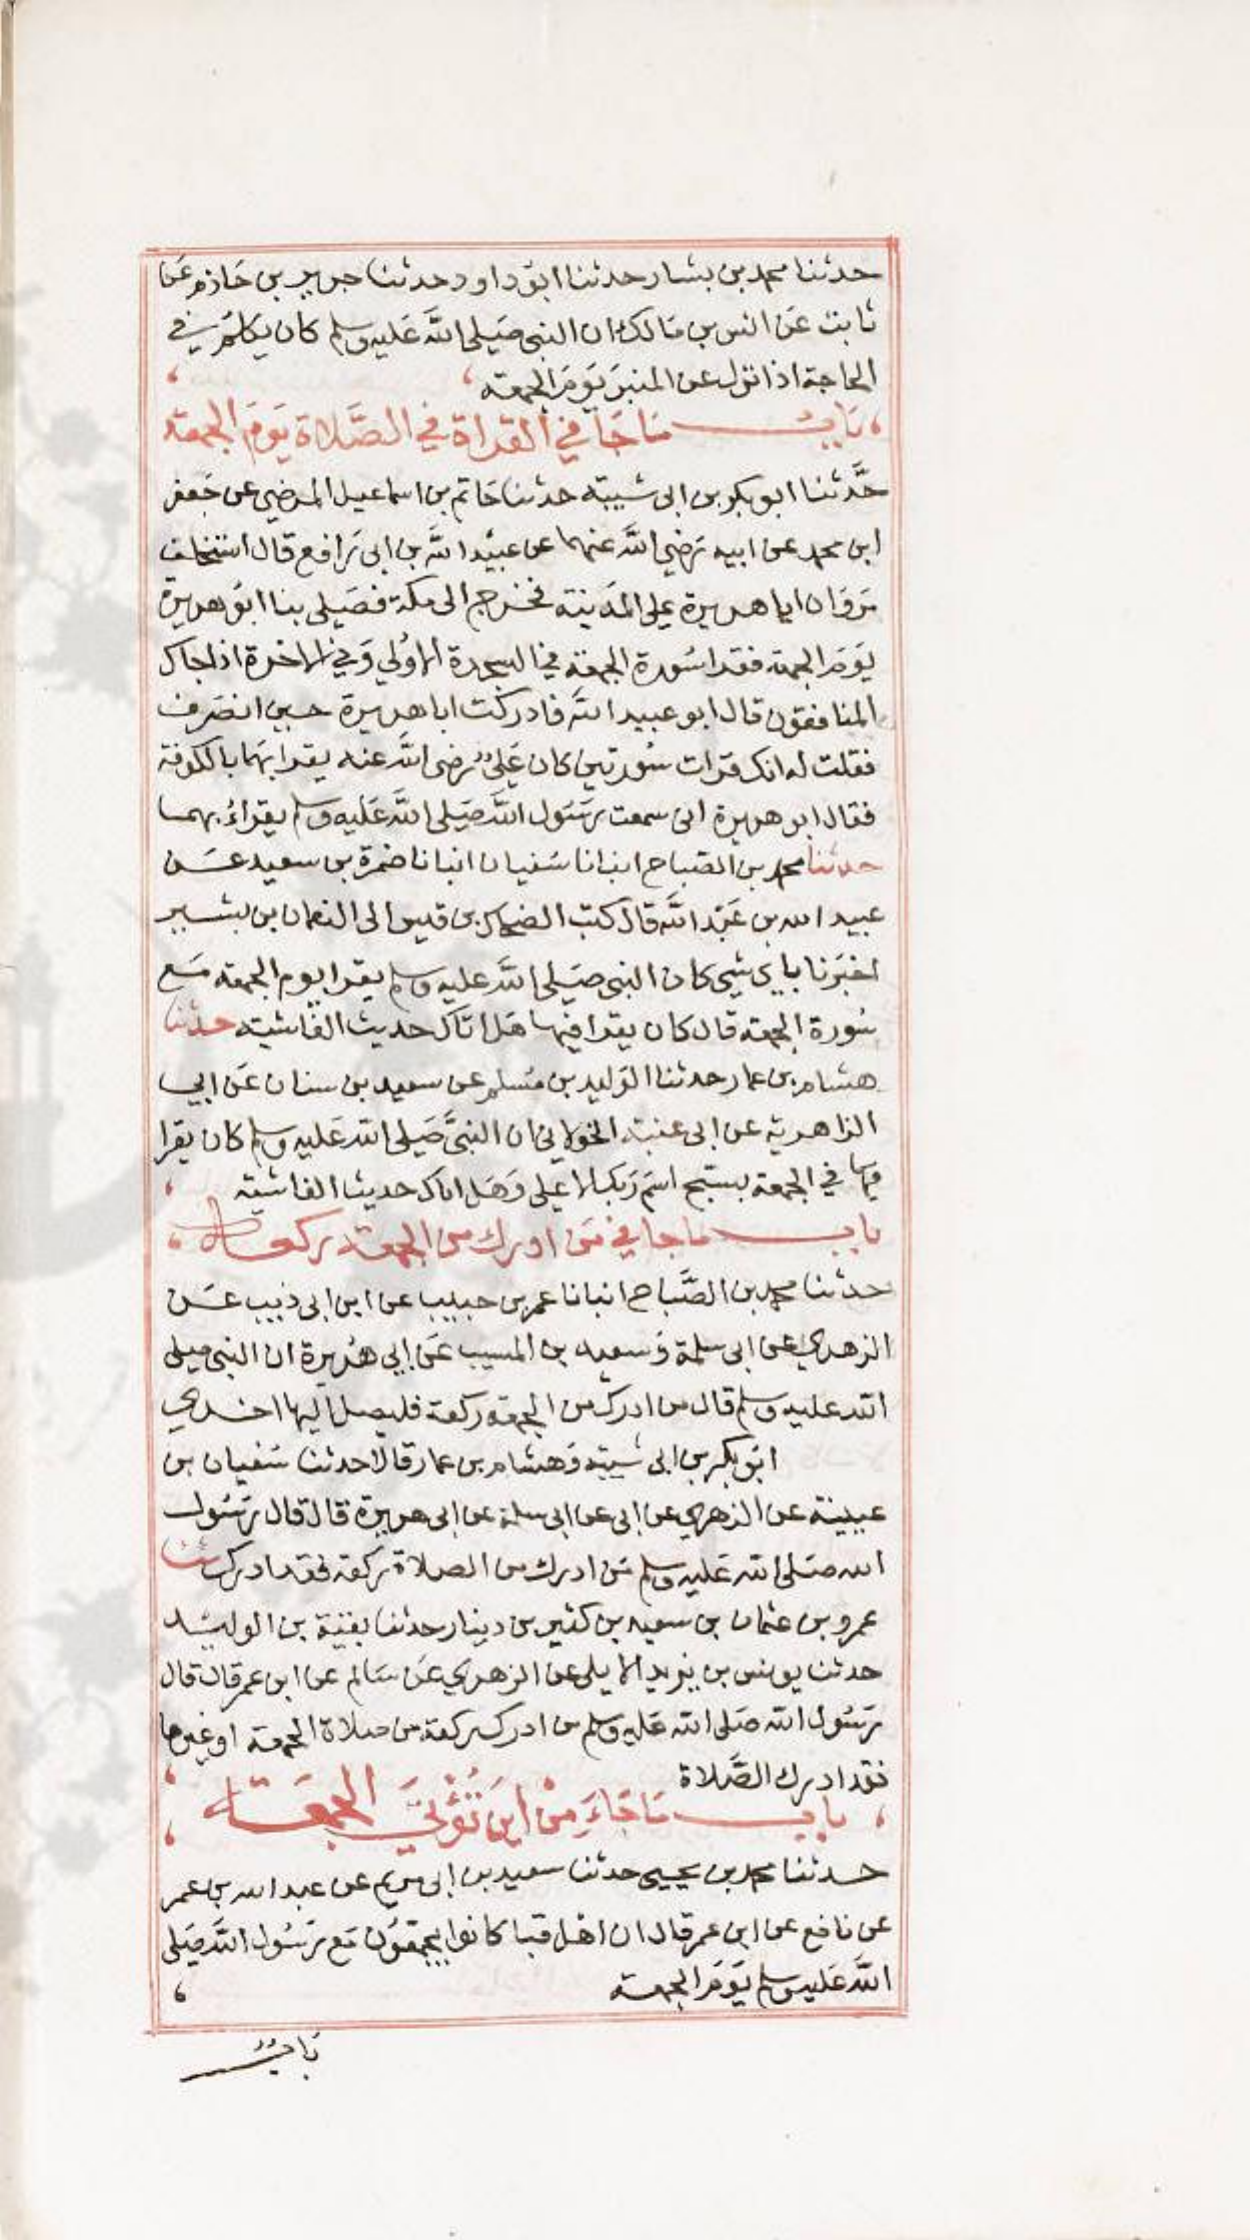 حدثنا محمد بن بشار حدثنا ابو داود حدثنا جرير بن حازم عن
ثابت عن انس بن مالك ان النبي صلى الله عليه وسلم كان يكلم في
الحاجة اذا نزل عن المنبر يوم الجمعة
باب ما جا في القراة في الصلاة يوم الجمعة
حدثنا ابو بكر بن ابي شيبة حدثنا حاتم بن اسماعيل المدني عن جعفر
ابن محمد عن ابيه رضي الله عنهما عن عبيد الله بن ابي رافع قال استخلف
مروان ابا هريرة على المدينة فخرج الى مكة فصلى بنا ابو هريرة
يوم الجمعة فقرا سورة الجمعة في السجدة الاولي وفي الاخرة اذا جاك
المنافقون قال ابو عبيد الله فادركت ابا هريرة حين انصرف
فقلت له انك قرات سورتين كان علي رضي الله عنه يقرا بهما بالكوفة
فقال ابو هريرة اني سمعت رسول الله صلى الله عليه وسلم يقراء بهما
حدثنا محمد بن الصباح انبانا سفيان انبانا ضمرة بن سعيد عن
عبيد الله بن عبد الله قال كتب الضحاك بن قيس الى النعمان بن بشير
اخبرنا باي شي كان النبي صلى الله عليه وسلم يقرا يوم الجمعة مع
سورة الجمعة قال كان يقرا فيها هل اتاك حديث الغاشية حدثنا
هشام بن عمار حدثنا الوليد بن مسلم عن سعيد بن سنان عن ابي
الزاهرية عن ابي عنبة الخولاني ان النبي صلى الله عليه وسلم كان يقرا
فيها في الجمعة بسبح اسم ربك الاعلى وهل اتاك حديث الغاشية
باب ما جا في من ادرك من الجمعة ركعة
حدثنا محمد بن الصباح انبانا عمر بن حبيب عن ابن ابي ذيب عن
الزهري عن ابي سلمة وسعيد بن المسيب عن ابي هريرة ان النبي صلى
الله عليه وسلم قال من ادرك من الجمعة ركعة فليصل اليها اخري
ابو بكر بن ابي شيبة وهشام بن عمار قالا حدثنا سفيان بن
عيينة عن الزهري عن ابي عن ابي سلمة عن ابي هريرة قال قال رسول
الله صلى الله عليه وسلم من ادرك من الصلاة ركعة فقد ادرك ثنا
عمرو بن عثمان بن سعيد بن كثير بن دينار حدثنا بقية بن الوليد
حدثنا يونس بن يزيد الايلي عن الزهري عن سالم عن ابن عمر قال قال
رسول الله صلى الله عليه وسلم من ادرك ركعة من صلاة الجمعة او غيرها
فقد ادرك الصلاة
باب ما جاء من اين تؤتي الجمعة
حدثنا محمد بن يحيى حدثنا سعيد بن ابي مريم عن عبد الله بن عمر
عن نافع عن ابن عمر قال ان اهل قبا كانوا يجمعون مع رسول الله صلى
الله عليه وسلم يوم الجمعة
باب